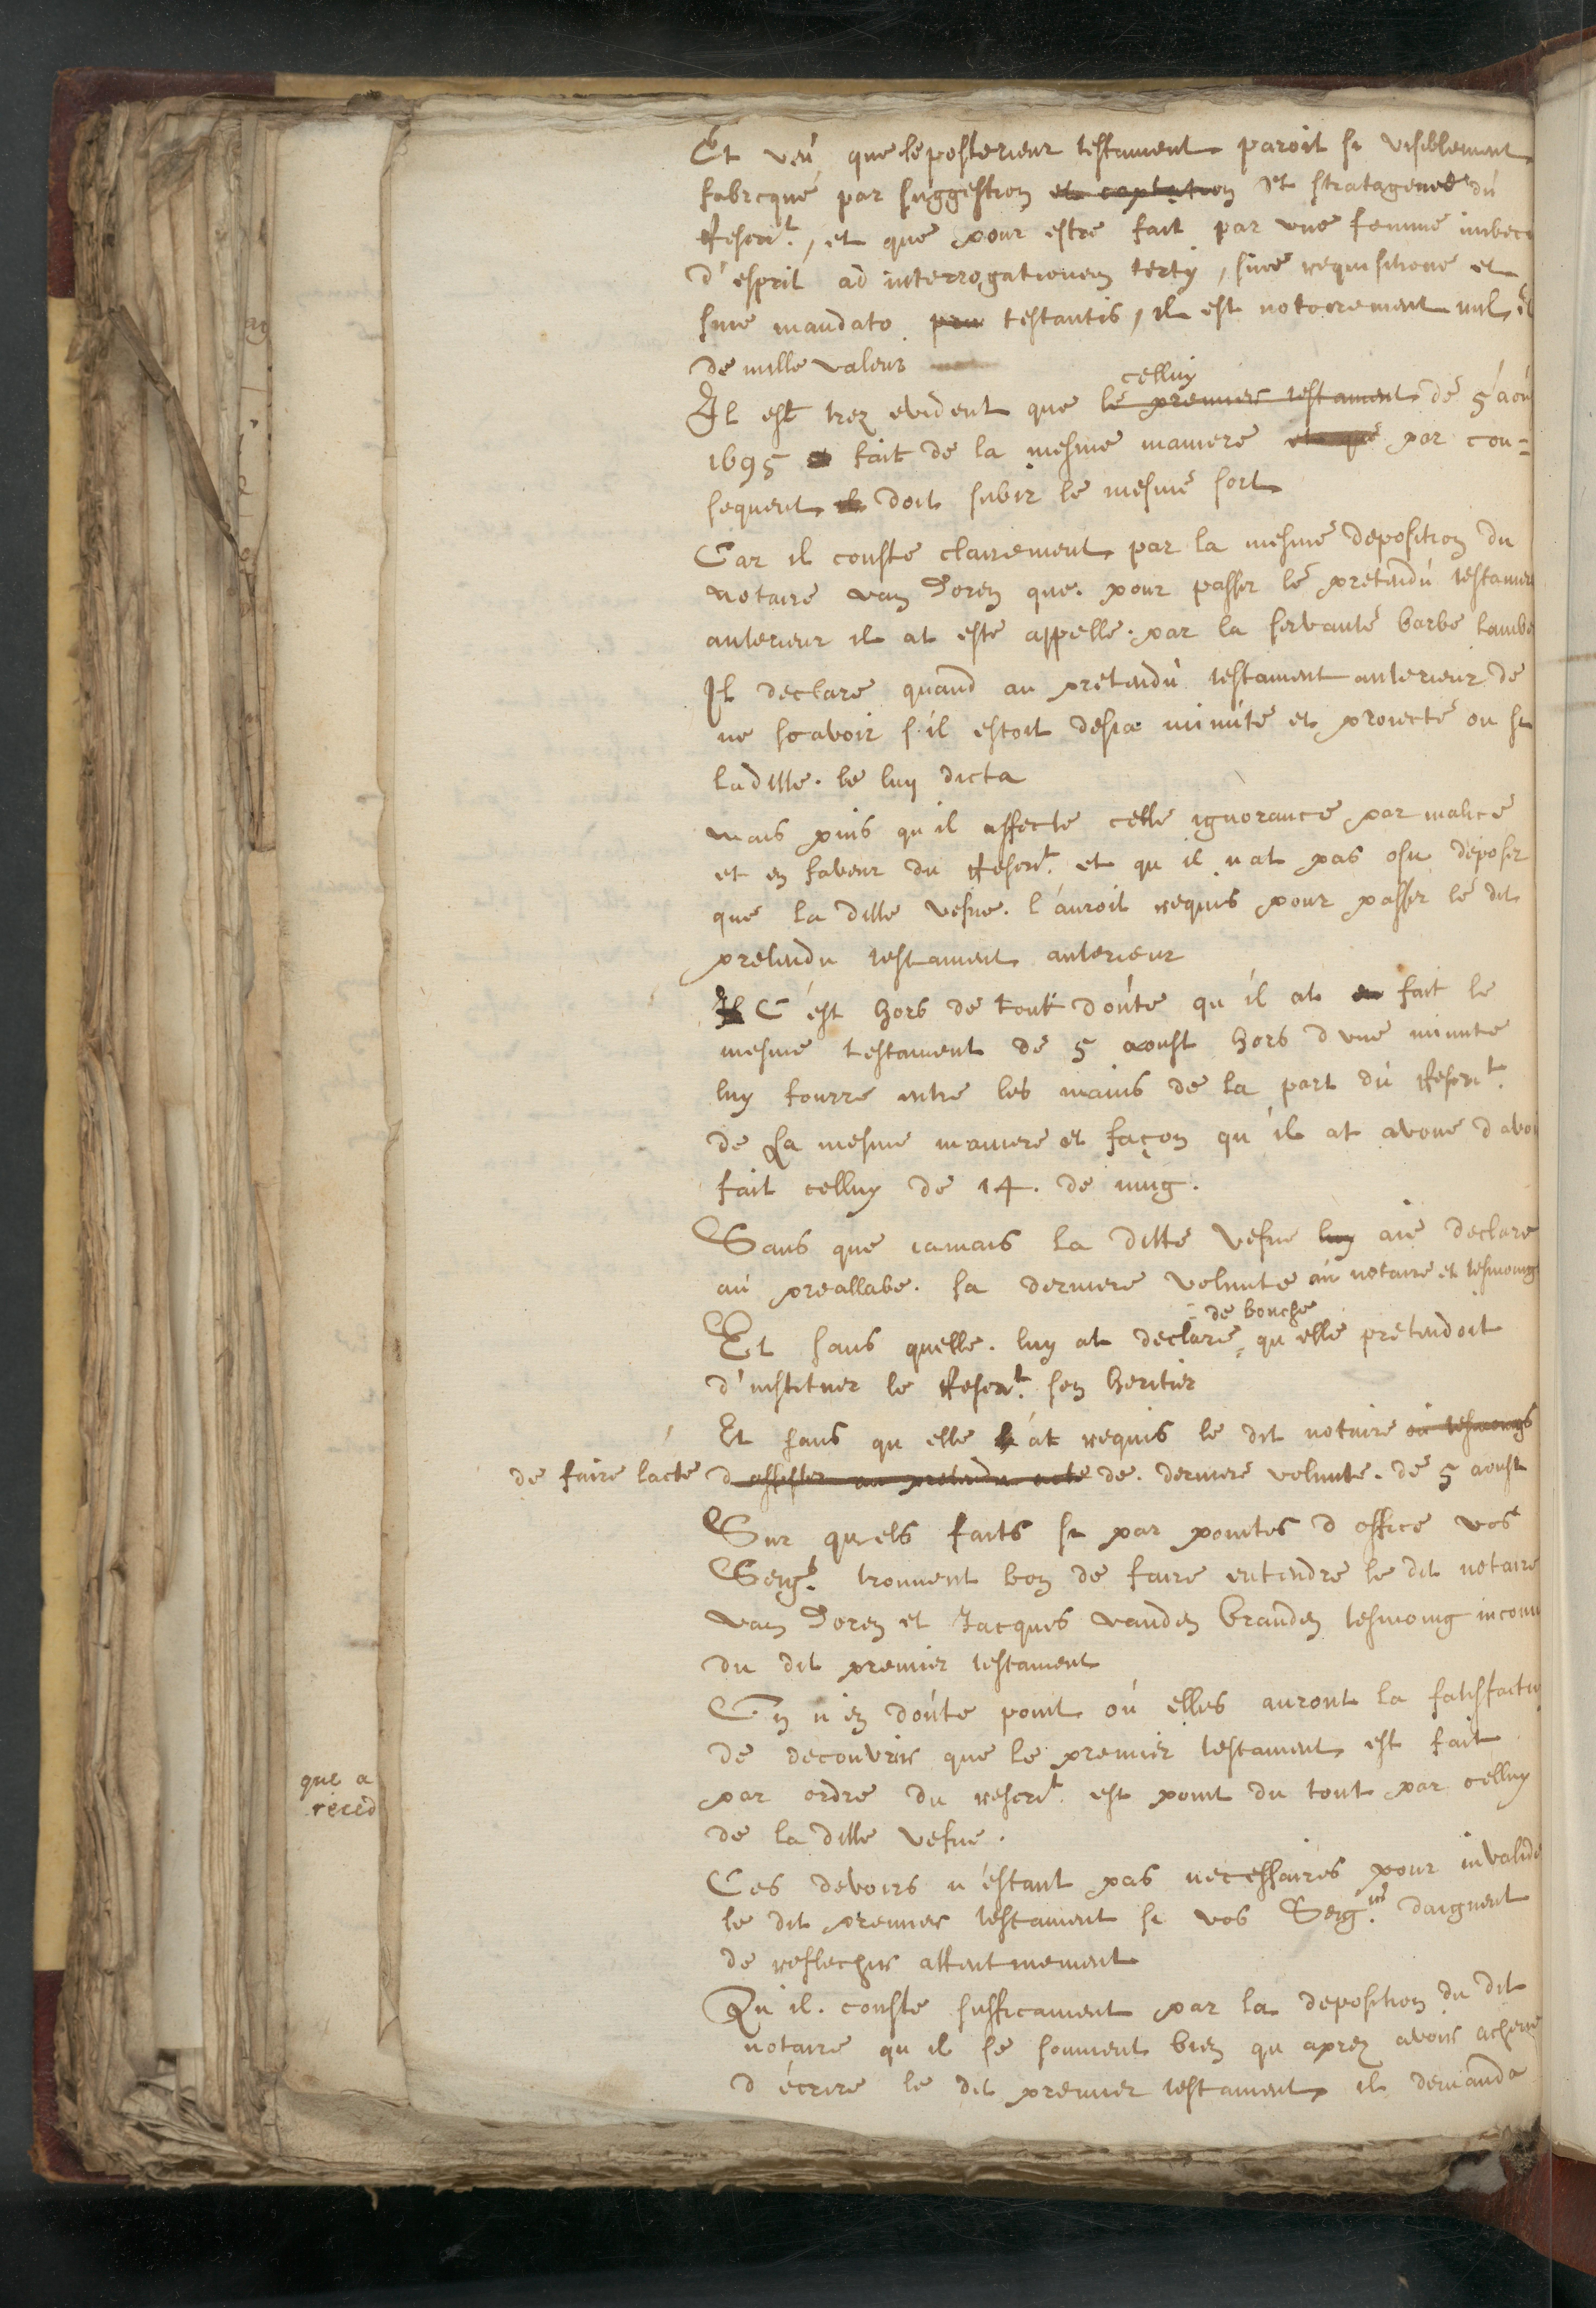 Et veú que le posterieur testament paroit si visiblement
fabricqué par súggestion et captation et stratageme dú
Rescrit., et que pour estre fait par une femme imbeci
d'esprit ad interrogationem tertij, sine requisitione et
sine mandato testantis, il est notoirement nul, et
de nulle valeur
celluy
Il est trez evident que le premier testament de 5 aoú
1695 fait de la mesme maniere et que par con=
sequent il doit subir le mesme sort
Car il conste clairement par la mesme deposition du
notaire van Doren que pour passer le pretendú testamen
anterieur il at esté appellé par la servante barbe Lambe
Il declare quand au pretendú testament anterieur de
ne scavoir s'il estoit desia minúté et proiecté ou si
laditte. le luy dicta
mais puis qu'il affecte celle ignorance par malice
et en faveur du Rescrit. et qu'il n'at pas osu deposer
que la ditte vefue. l'auroit requis pour passer le dit
pretendu testament anterieur
C'est hors de tout doúte qu'il at fait le
mesme testament de 5 aoust hors d'une minute
luy fourre entre les mains de la part dú Rescrit.
de la mesme maniere et façon qu'il at avoue d'avoi
fait celluy de 14. de iung.
Sans que iamais la ditte vefue luy aie declare
aú preallabe. sa derniere volunte aú notaire et tesmoing
de bouche
Et sans quelle. luy at declare, qu'elle pretendoit
d'instituer le Rescrit. son heritier
Et sans qu'elle at requis le dit notaire ou tesmoings
de faire l'acte d'assister au pretendu acte de. derniere volunte. de 5 aoust
Sur quels faits si par pointes d'office vos
Seig.rs trouuent bon de faire entendre le dit notaire
van Doren et Jacques vanden Branden tesmoing inconu
du dit premier testament
On n'en doúte point oú elles auront la satisfactio
de decouvrir que le premier testament est fait
par ordre du rescrit. est point du tout par celluy
de la ditte vefue.
que a
reced
Ces devoirs n'estant pas necessaires pour invalide
le dit premier testament si vos Seig.ries daignent
de reflechir attentivement
Qu'il. conste sufficament par la deposition du dit
notaire qu'il se souvient bien qu'aprez avoir acheve
d'écrire le dit premier testament, il demanda